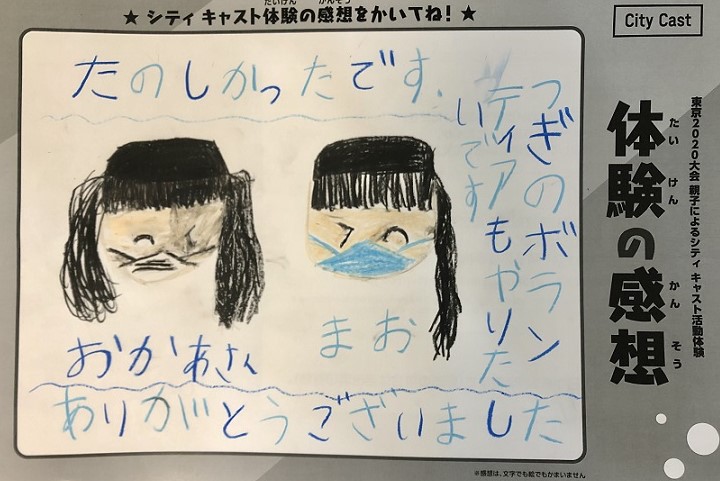 ★ シティ キャスト体験の感想をかいてね! ★
たいけん かんそう
City Cast
東京2020大会 親子によるシティ キャスト活動体験
体験の感想
たい けん かん そう
たのしかったです.
つぎのボラン
ティアもやりた
いです
おかあさん
まお
ありがとうございました
※感想は、文字でも絵でもかまいません